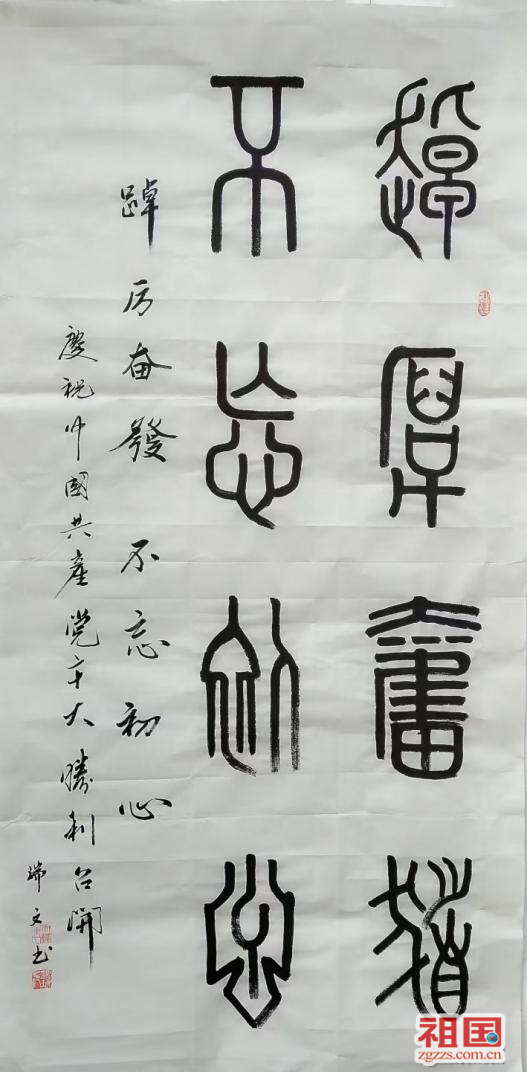 踔厲奮發
不忘初心
踔厉奋發 不忘初心
慶祝中國共産党二十大勝利召開
瑞文书
祖国
zgzzs.com.cn